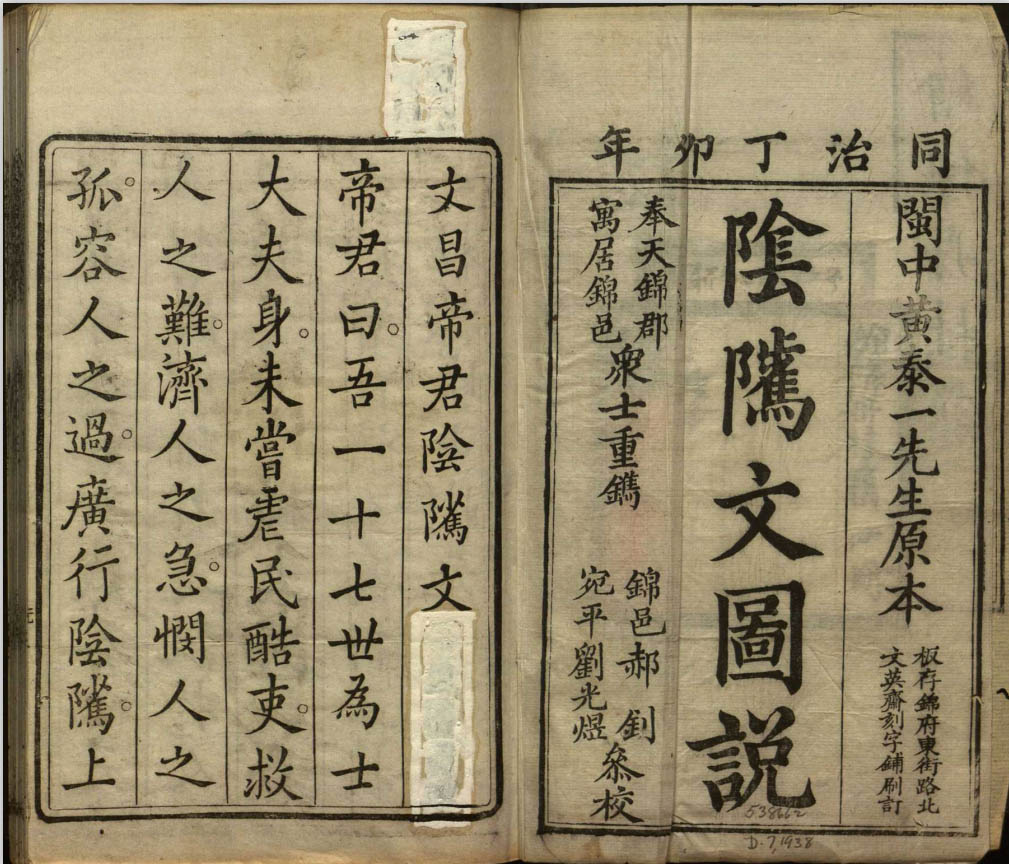 同治丁卯年
閩中黃泰一先生原本
板存錦府東街路北
文英齋刻字鋪刷訂
陰隲文圖説
奉天錦郡
寓居錦邑
衆士重鐫
錦邑郝釗
宛平劉光煜
叅校
538662
D.7,1938
文昌帝君陰隲文
帝君曰。吾一十七世為士
大夫身。未嘗虐民酷吏。救
人之難。濟人之急。憫人之
孤。容人之過。廣行陰隲。上